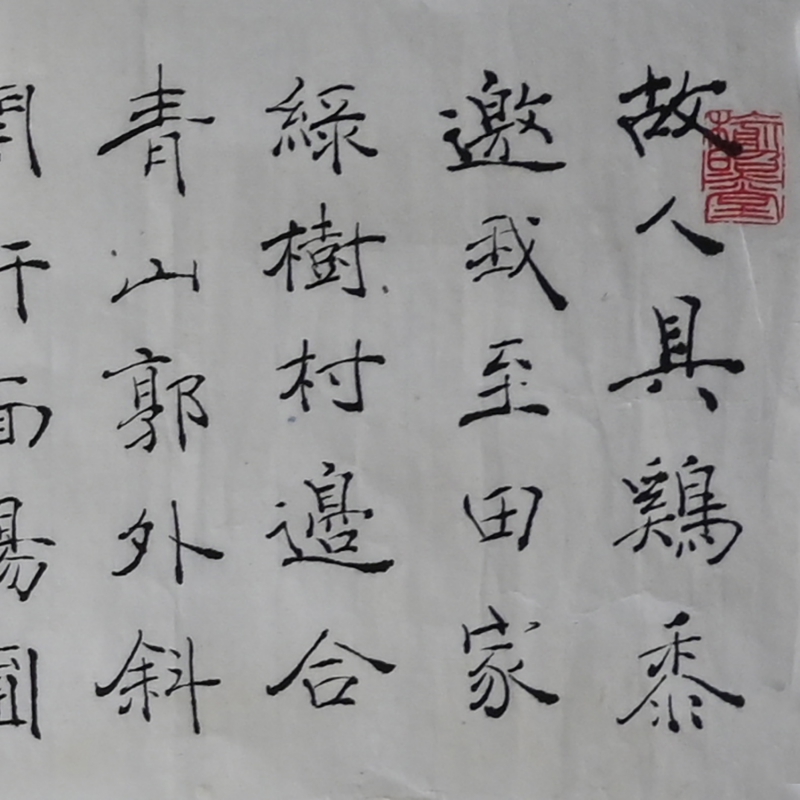 故人具鷄黍
邀我至田家
綠樹村邊合
青山郭外斜